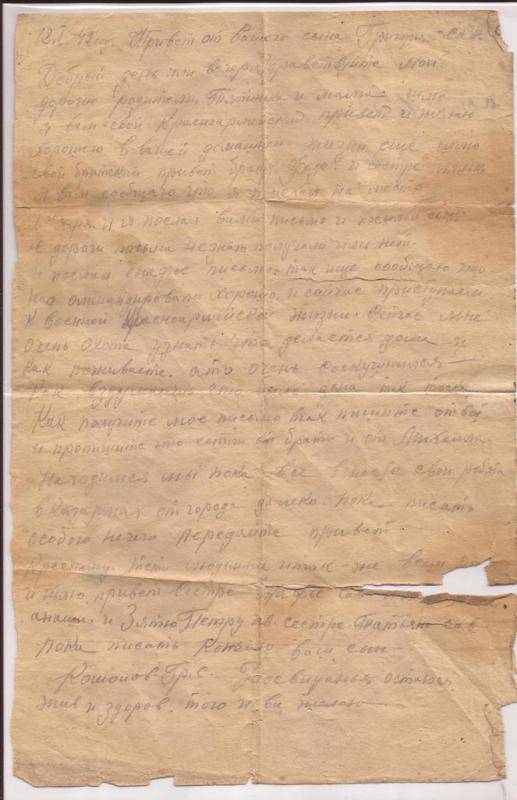 12.I.42 г. Привет от Вашего сына Григория
Добрый день или вечер здравствуйте мои
дорогие родители Тятинка и мама шлю
я вам свой Красноармейский привет и желаю
хорошего в вашей домашней жизни еще шлю
свой братский привет и сестре
я вам сообщаю что я приехал на место
и я послал вам письмо и посылал еще
с дороги письма не знаю получали или нет
и послал письмо. так ище сообщаю что
нас хорошо. и сайчас приступаем
к военной Красноармейской жизни. Сечас мне
очень охота узнать что делается дома и
как поживаете. а то очень соскучился
так тоска
Как получите мое письмо так пишите ответ
и пропишите что от брата и от Михаила.
Находимся мы пока все в свои ребята
в Казармах от города далеко. пока писать
особого нечего передайте привет
и так-же всем
и шлю привет сестре
и Зятю Петру ив. сестре Татьяне сав
пока писать кончаю ваш сын
Гр.С. Досвиданья остаюсь
жив и здоров. того и вам желаю